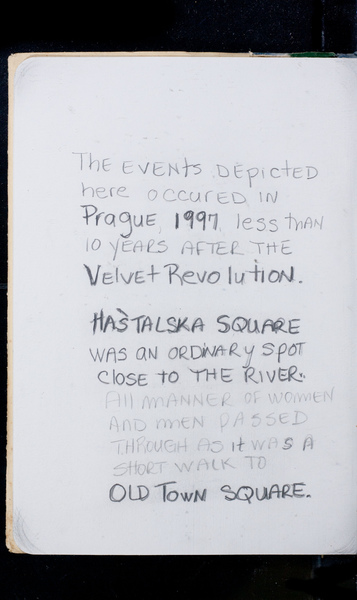 The EVENTS DEpicTED
here occured in
Prague, 1997, less thAN
10 YEARS AFTER THE
Velvet Revolution.
HAŠTALSKA SQUARE
WAS an ORDINARY SPOT
Close to THE RIVER.
All MANNER OF WOMEN
AND MEN PASSED
THROUGH AS it WAS A
SHORT WALK TO
OLD TOWN SQUARE.